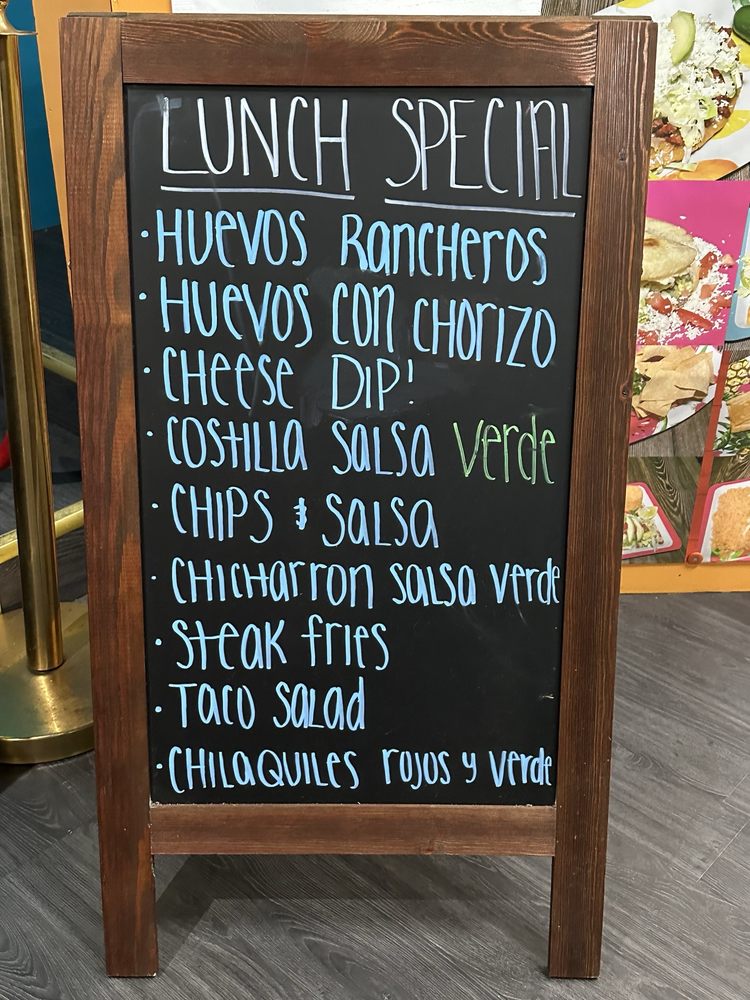 LUNCH SPECIAL
· HUEVOS RANCHEROS
· HUEVOS CON CHORIZO
· CHEESE DIP!
· COSTILLA SALSA VERDE
· CHIPS & SALSA
· CHICHARRON SALSA VERDE
· STEAK FRIES
· TACO SALAD
· CHILAQUILES ROJOS Y VERDE